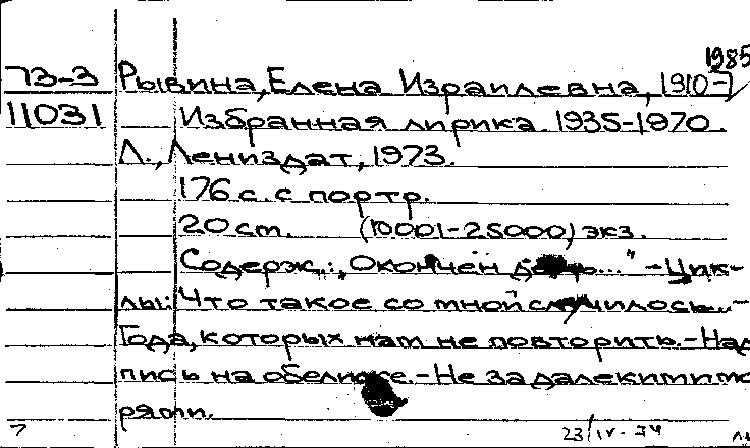 1985
73-3 Рывина, Елена Израилевна, 1910-
11031 Избранная лирика 1935-1970.
Л., Лениздат, 1973.
176 с. с портр.
20 см. (10001-25000) экз.
Содерж.: „Окончен день..." -Цик-
лы: Что такое со мной случилось...-
Года, которых нам не повторить.-Над
пись на обелиске.-Не за далекими мо
рями.
23/IV-74